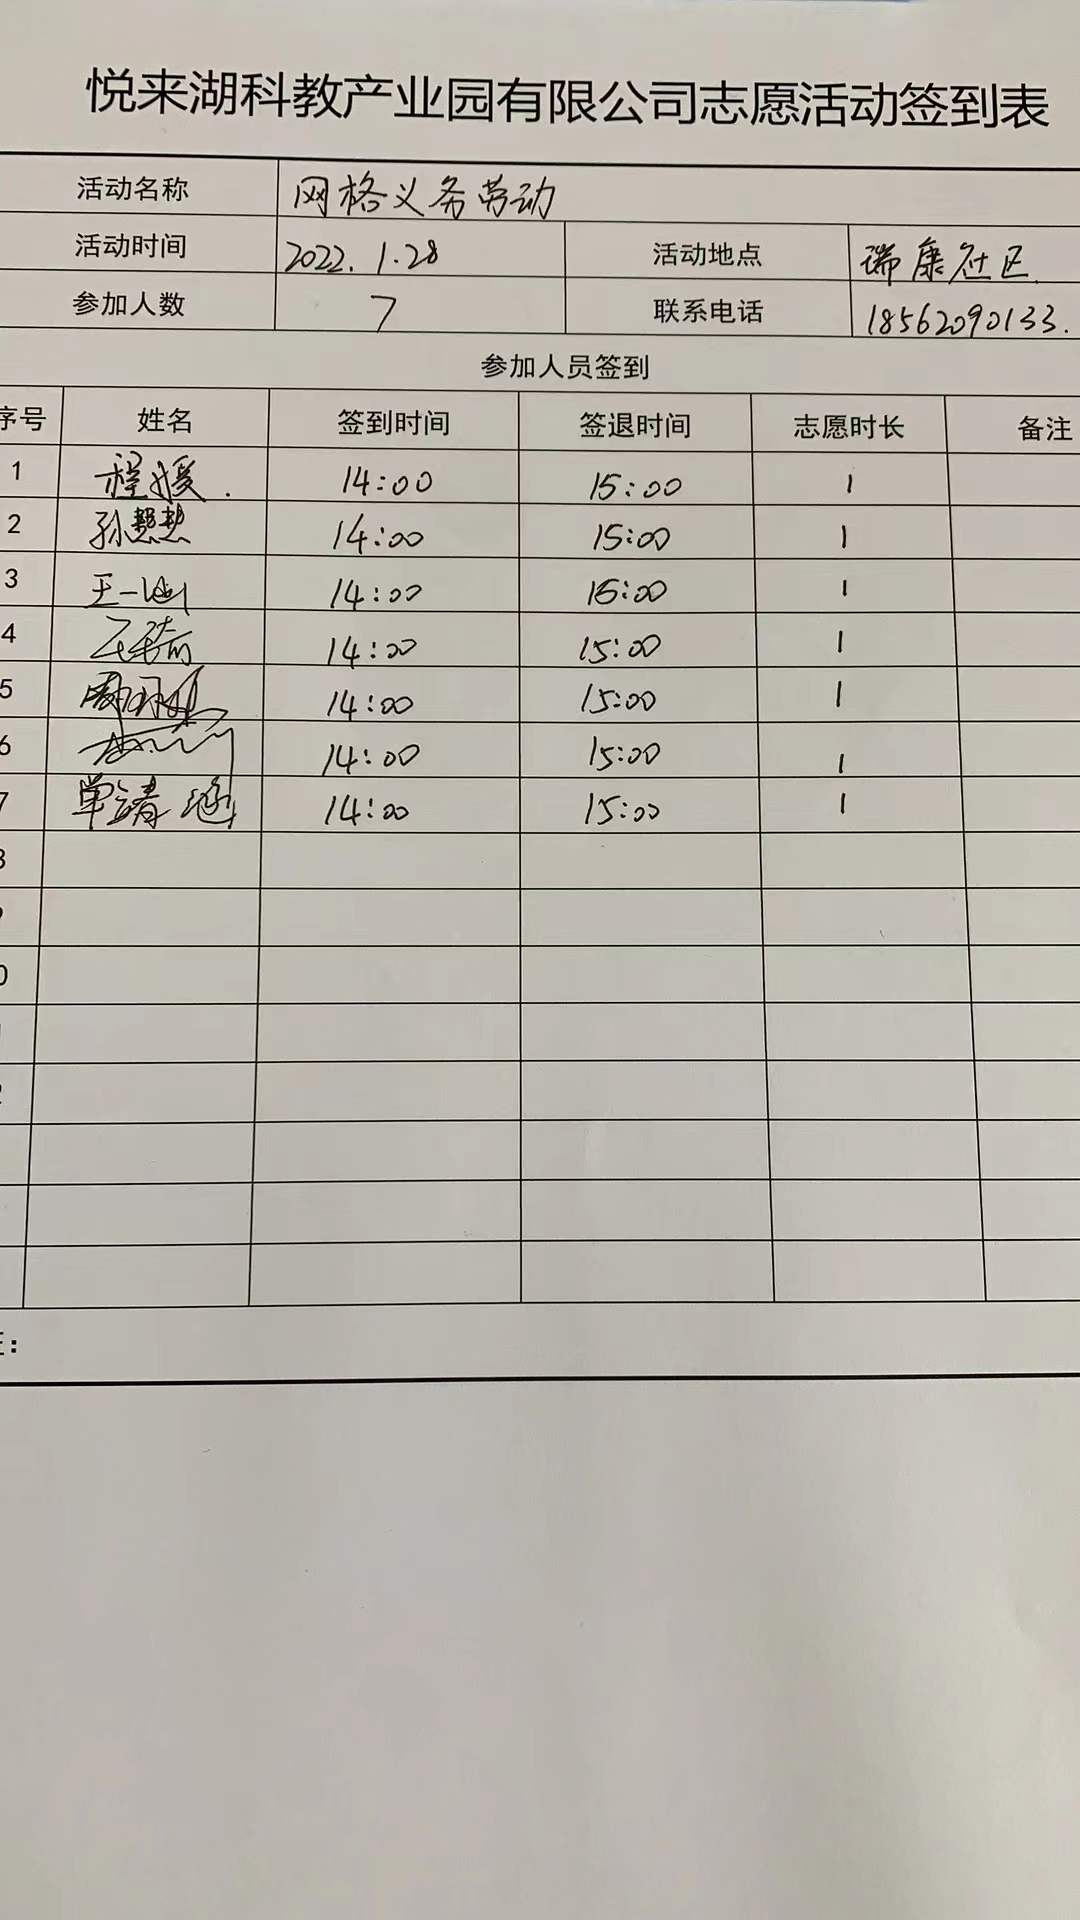 悦来湖科教产业园有限公司志愿活动签到表
活动名称 网格义务劳动
活动时间 2022.1.28 活动地点 瑞康社区.
参加人数 7 联系电话 18562090133.
参加人员签到
序号 姓名 签到时间 签退时间 志愿时长 备注
1 程媛. 14:00 15:00 1
2 孙慧慧 14:00 15:00 1
3 王一涵 14:00 15:00 1
4 14:00 15:00 1
5 14:00 15:00 1
6 14:00 15:00 1
7 单清涵 14:00 15:00 1